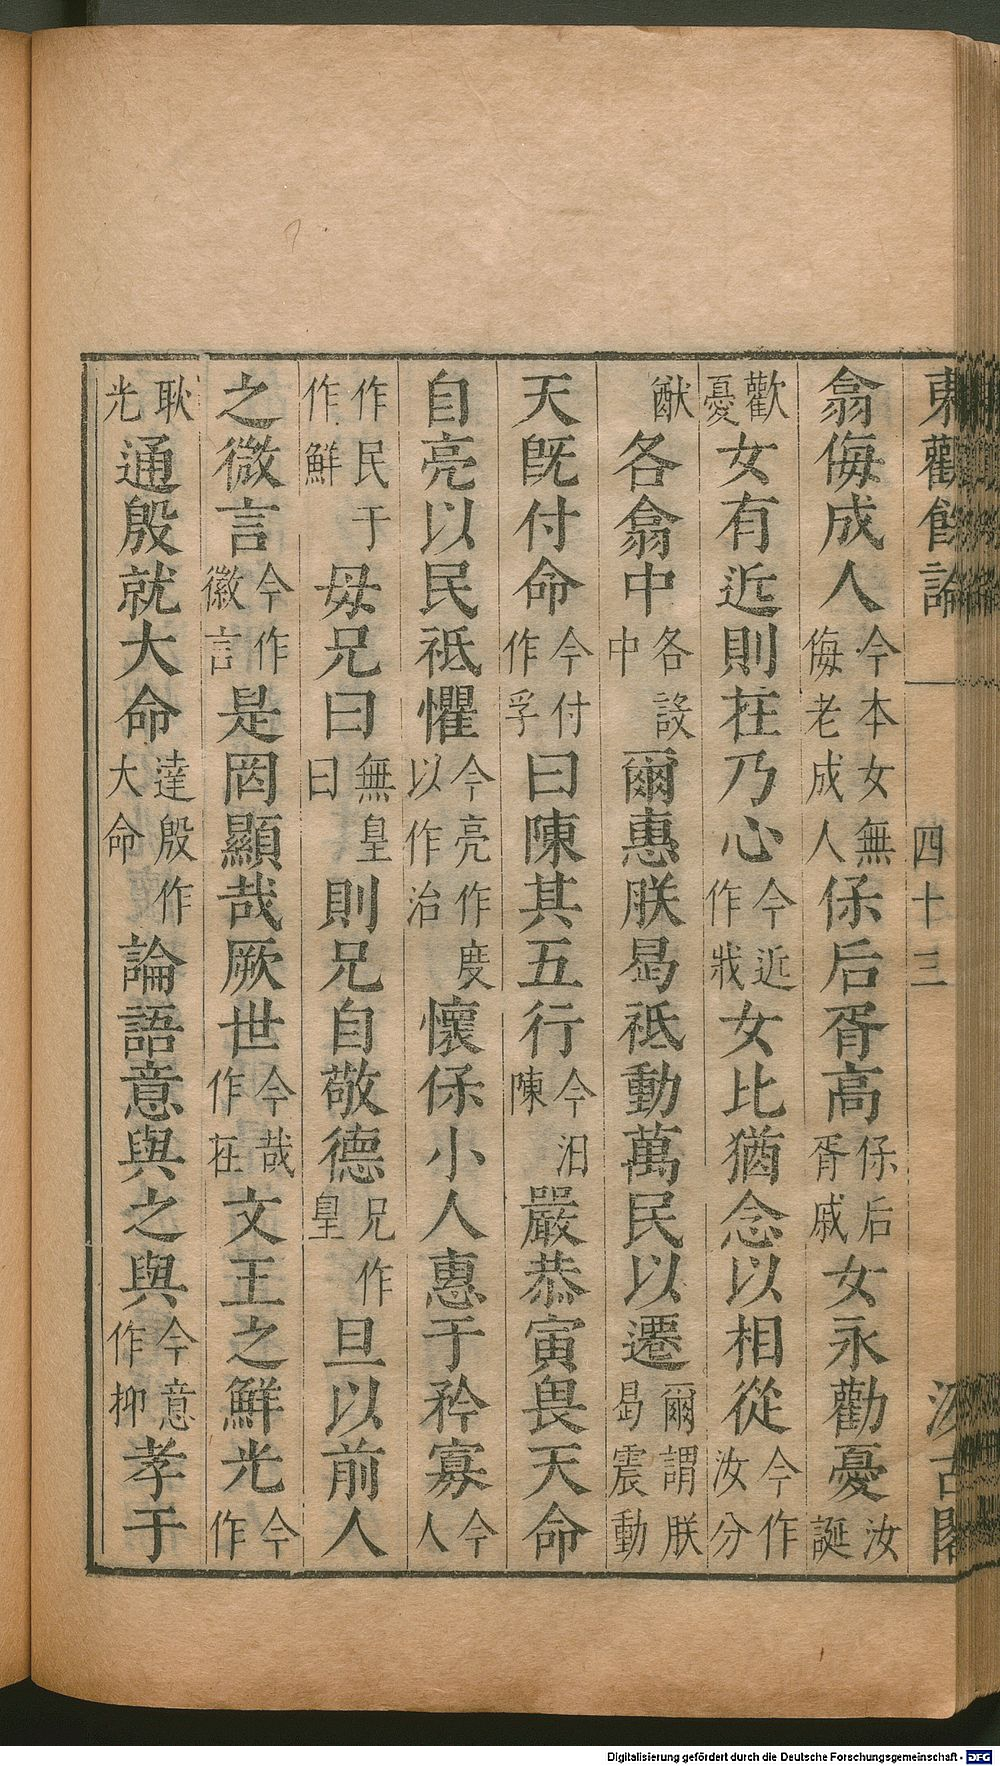 東觀餘論 四十三 汲古閣
翕侮成人今本女無侮老成人保后胥高保后胥戚女永勸憂汝誕
勸憂女有近則在乃心今近作戕女比猶念以相從今作汝分
猷各翕中各設中爾惠朕曷祗動萬民以遷爾謂朕曷震動
天旣付命今付作孚曰陳其五行今汩陳嚴恭寅畏天命
自亮以民祗懼今亮作度以作治懷保小人惠于矜寡今人
作民于作鮮毋兄曰無皇曰則兄自敬德兄作皇旦以前人
之微言今作徽言是罔顯哉厥世今哉作在文王之鮮光今作
耿光通殷就大命達殷作大命論語意與之與今意作抑孝于
Digitalisierung gefördert durch die Deutsche Forschungsgemeinschaft - DFG